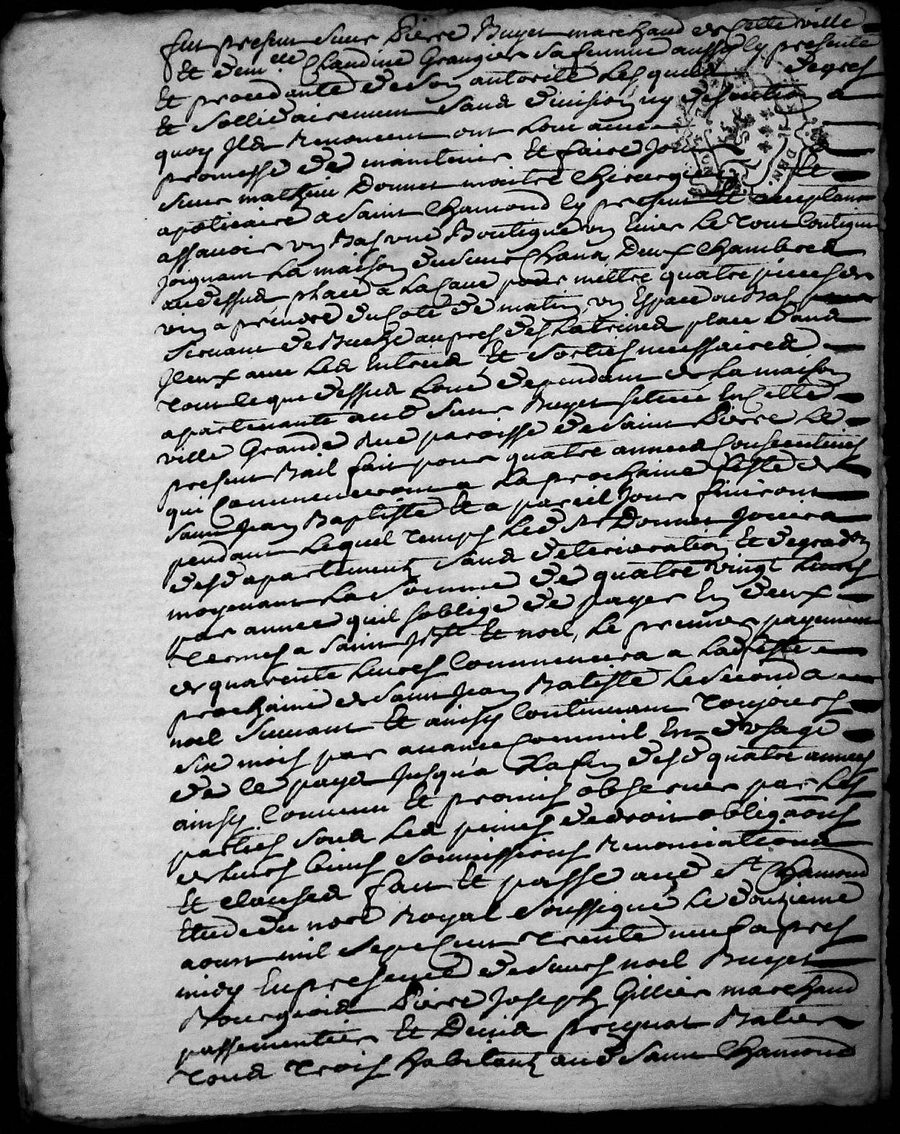 fut present sieur Pierre Buyet marchand de cette ville
Et dem.lle Claudine Grangier sa femme aussy ly presente
Et procedante de son autorité Lesquels de gres
Et sollidairement sans division ny discution a
quoy Ils Renoncent ont Loué avec
promesse de maintenir Et faire Jouir
sieur mathieu Donnet maitre chirurgien Et
apoticaire a Saint Chamond ly present Et acceptant
assavoir un Bas ou Boutique un Evier Le tout contigu
Joignant La maison du sieur Deux Chambres
au dessus place a La Cave pour mettre quatre pieces de
vin a prendre du coté de matin, un Espace ou Bas
servant de Buche au pres des Latrines place dans
Jceux avec Les Entrées Et Sorties necessaires
tout Le que dessus Loué dependant de La maison
apartenante aud sieur Buyet scituée En cette
ville Grande Rue paroisse de Saint Pierre Le
present Bail fait pour quatre années Consecutives
qui Commenceront a La prochaine feste de
Saint Jean Baptiste Et a pareil Jour finiront
pendant Lequel temps Led sr Donnet Jouira
desd apartements sans deterioration Et degradon
moyenant La Somme de quatre vingt Livres
par année quil soblige de payer En deux
termes a Saint Jean Et noel, Le premier payement
de quarente Livres Commencera a Lad feste
prochaine de Saint Jean Batiste Le second a
noel suivant Et ainsy Continuant toujours
six mois par avance Comm'il Est d'usage
de le payer Jusqu'a La fin desd quatre années
ainsy Convenu Et promis observer par Les
parties sous Les peines de droit obligaons
de Leurs biens soumissions Renonciations
Et clauses fait Et passé aud St Chamond
Etude du nore Royal soussigné Le douzieme
aoust mil sept cent trente neuf apres
midy En presence de sieurs noel Buyet
Bourgeois Pierre Joseph Gillier marchand
passementier Et Denis Batier
tous trois habitants aud Saint Chamond